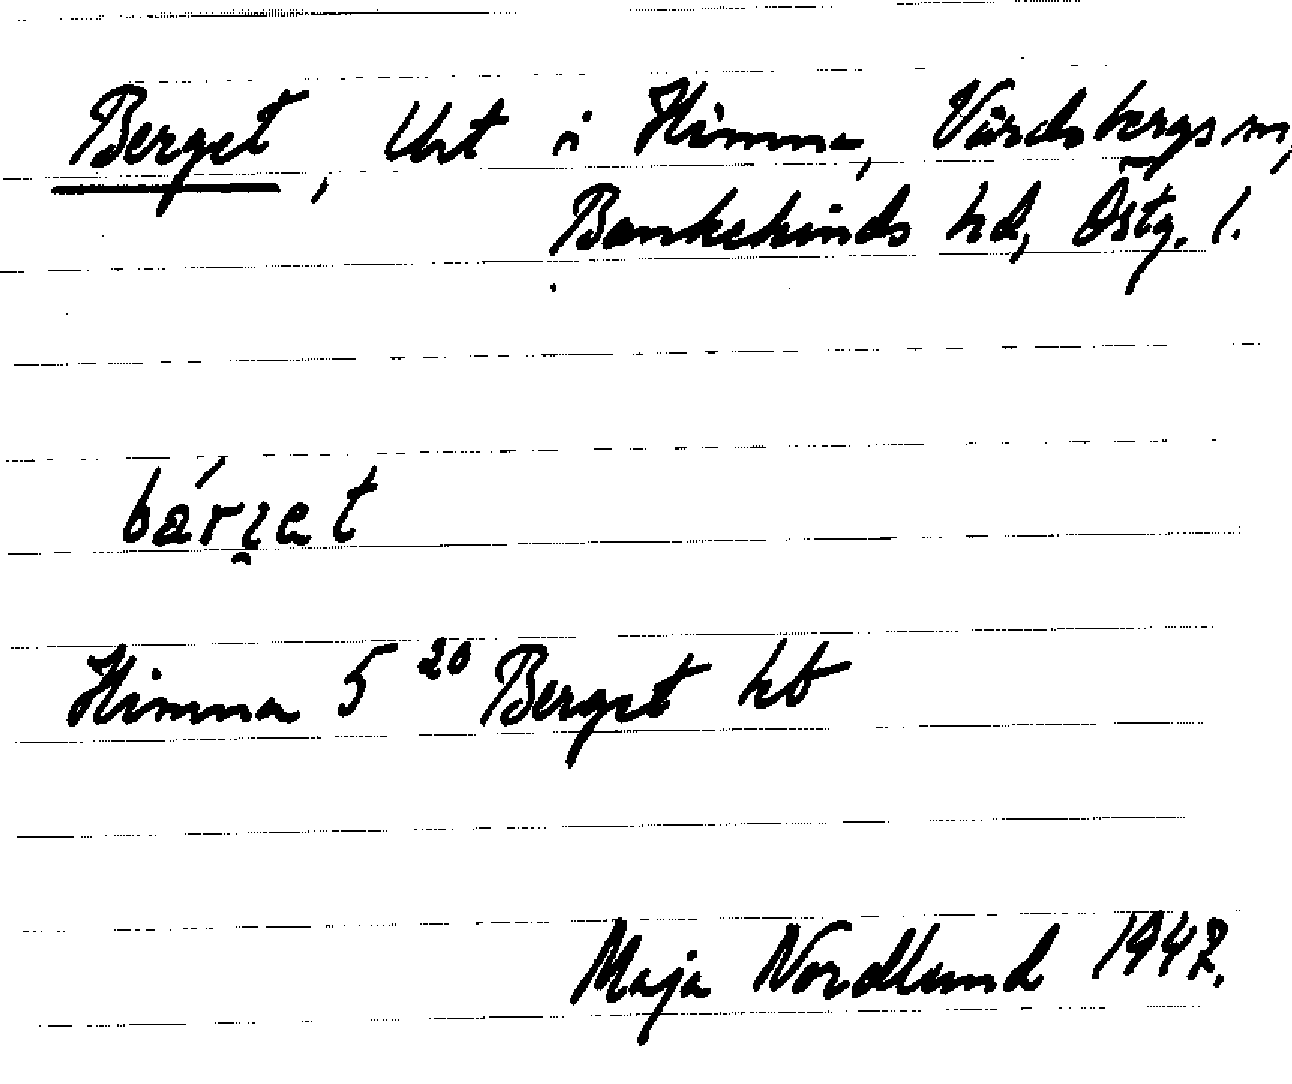 Berget, Urt i Himna, Vårdsbergs sn,
Bankekinds hd, Östg. l.
bárʒet
Himna 5²⁰ Berget hb
Maja Nordlund 1947.